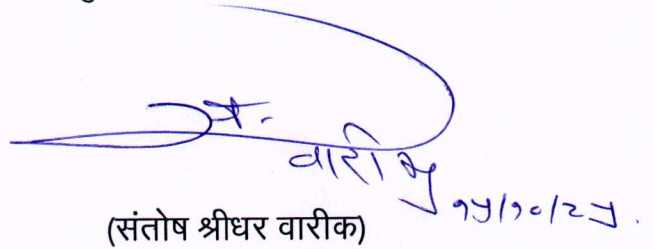 वारीक १५/१०/२५.
(संतोष श्रीधर वारीक)